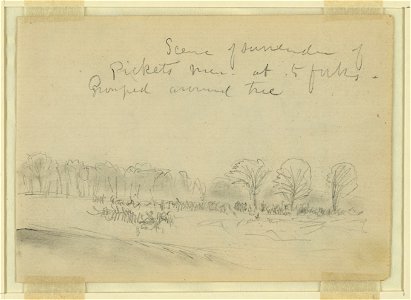 Scene of surrender of
Pickets men. at .5 forks.
Grouped around tree